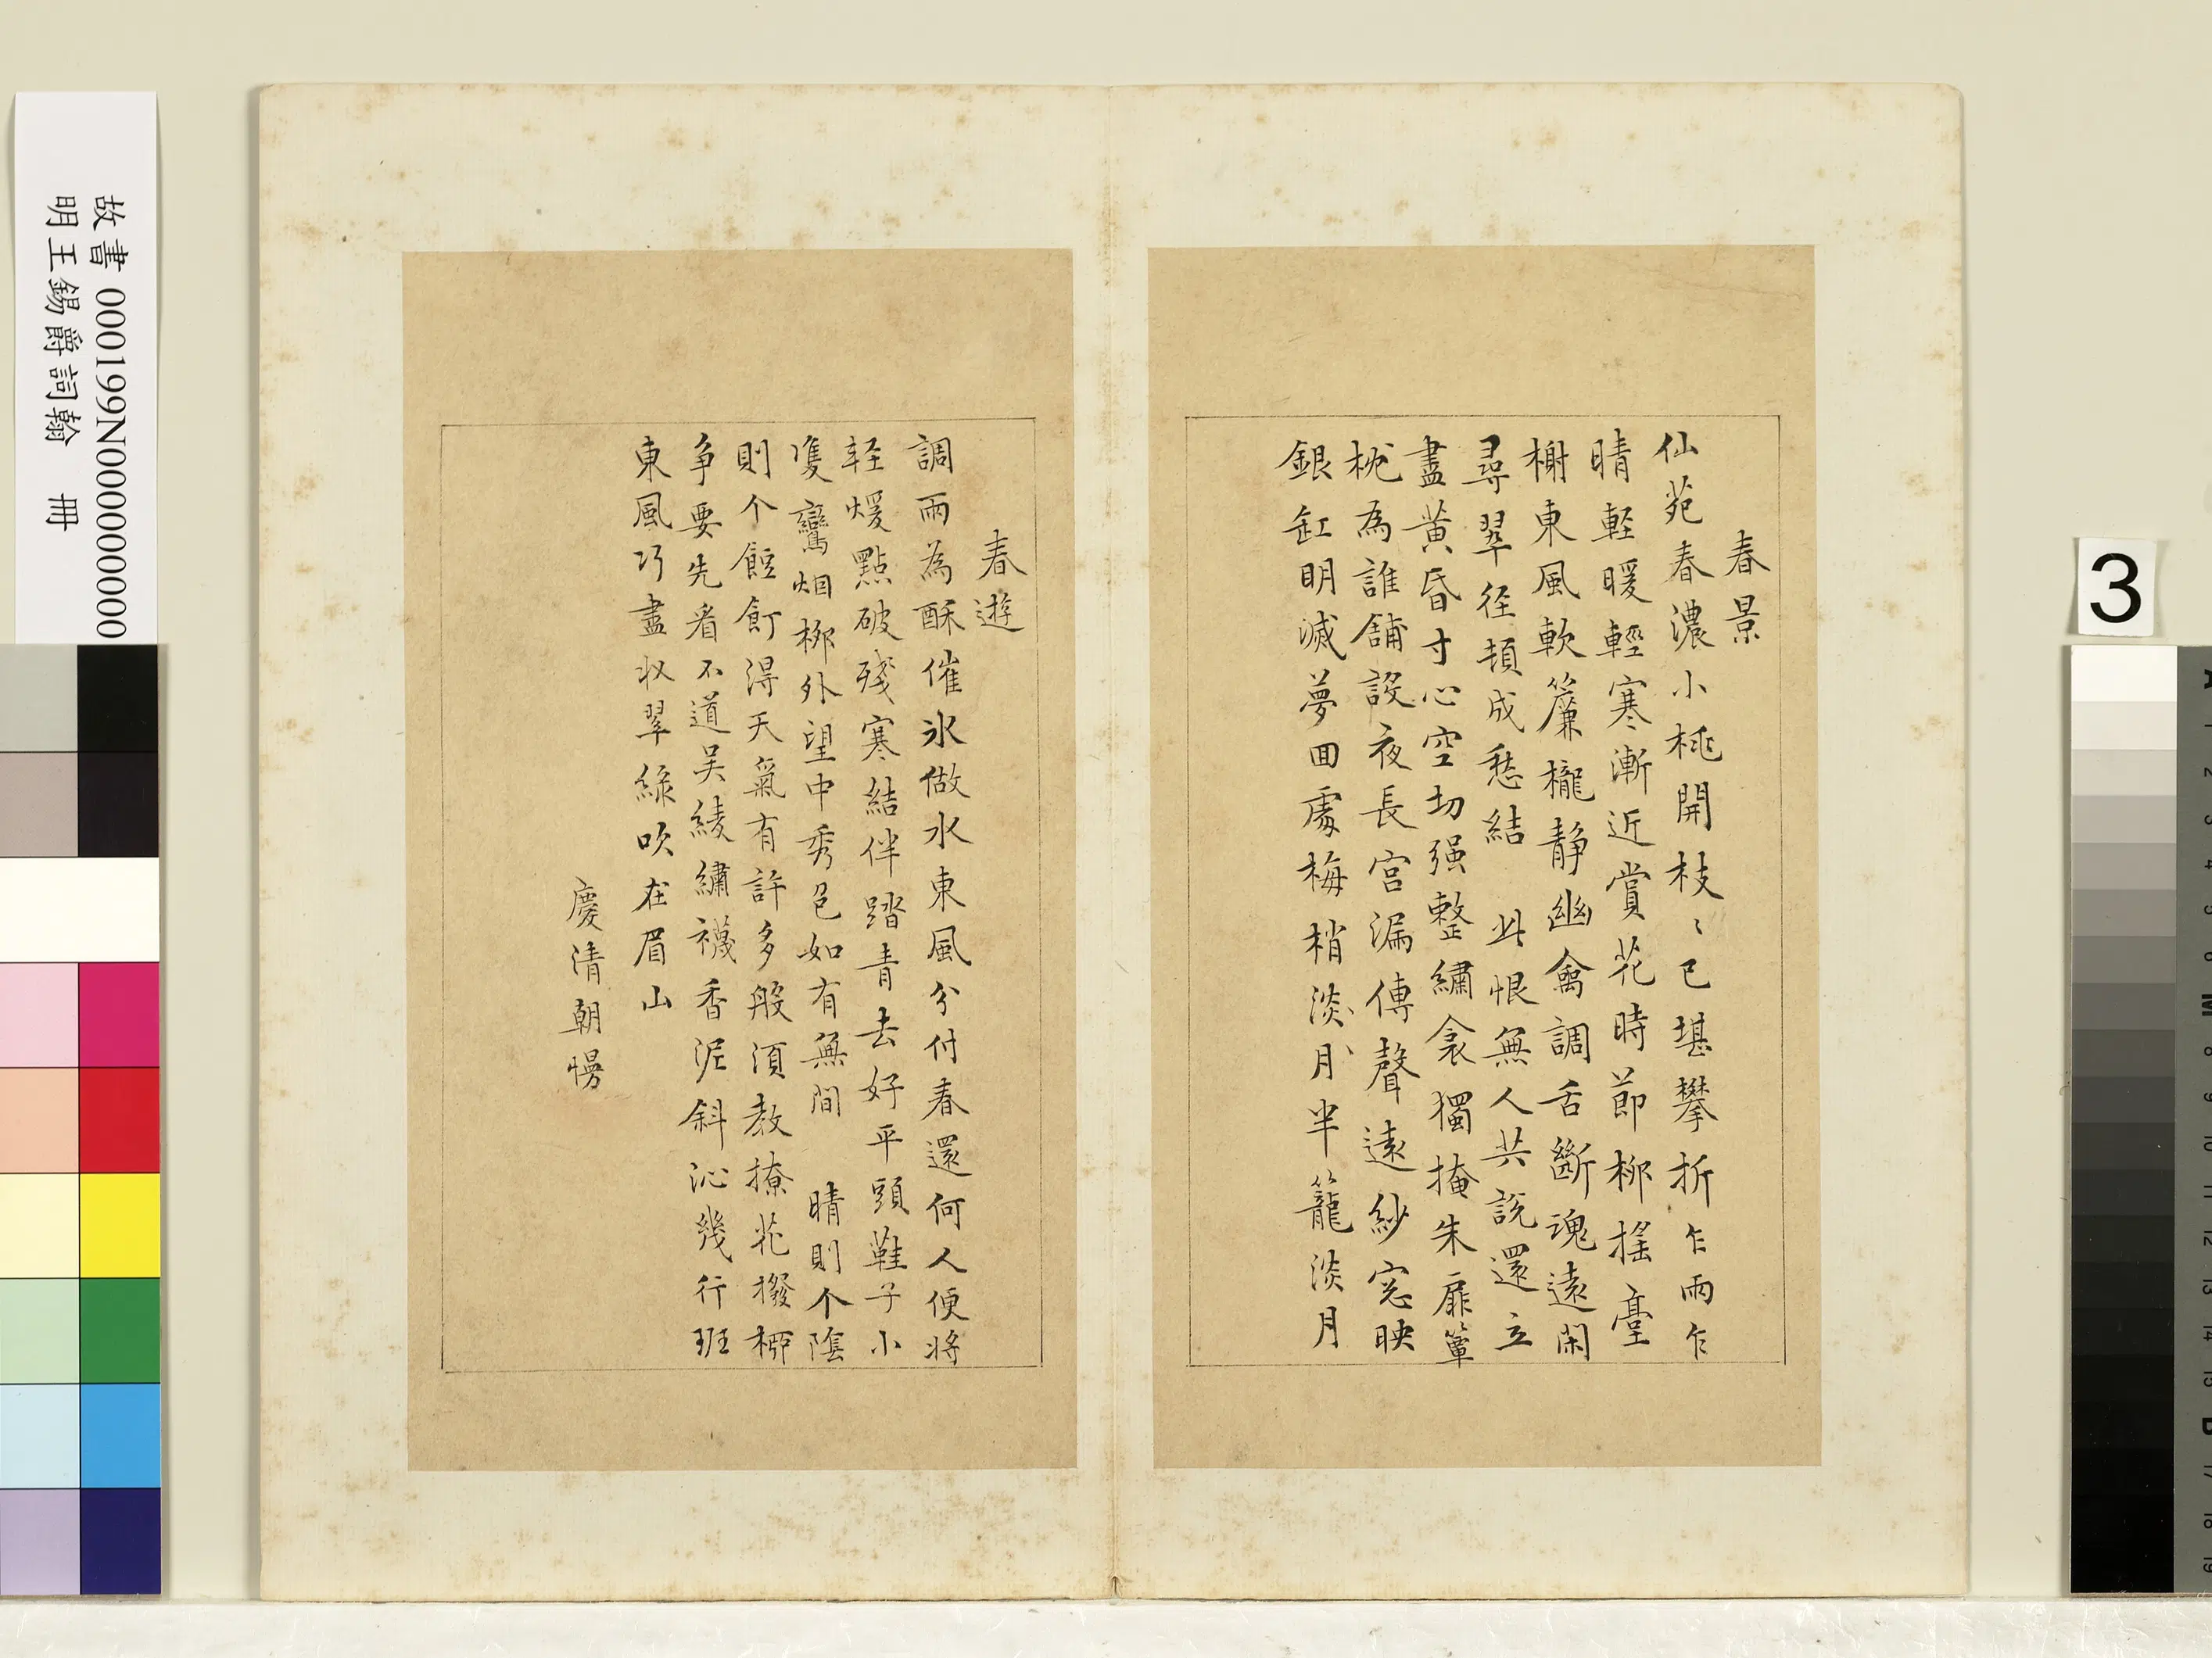 春景
仙苑春濃小桃開枝〻已堪攀折乍雨乍
晴軽暖輕寒漸近賞花時節柳搖臺
榭東風軟簾櫳静幽禽調舌斷魂遠閑
尋翠徑頓成愁結 此恨無人共說還立
盡黄昏寸心空切强整繡衾獨掩朱扉簟
枕為誰鋪設夜長宮漏傳聲遠紗窓映
銀缸明滅夢回處梅梢淡月半籠淡月
春遊
調雨為酥催氷做水東風分付春還何人便將
軽煖點破殘寒結伴踏青去好平頭鞋子小
隻鸞烟柳外望中秀色如有無間 晴則个陰
則个餖飣得天氣有許多般須教撩花撥柳
争要先看不道吴綾繡襪香泥斜沁幾行班
東風巧盡收翠綠吹在眉山
慶清朝慢
故書 000199N000000000
明王錫爵詞翰 冊
3